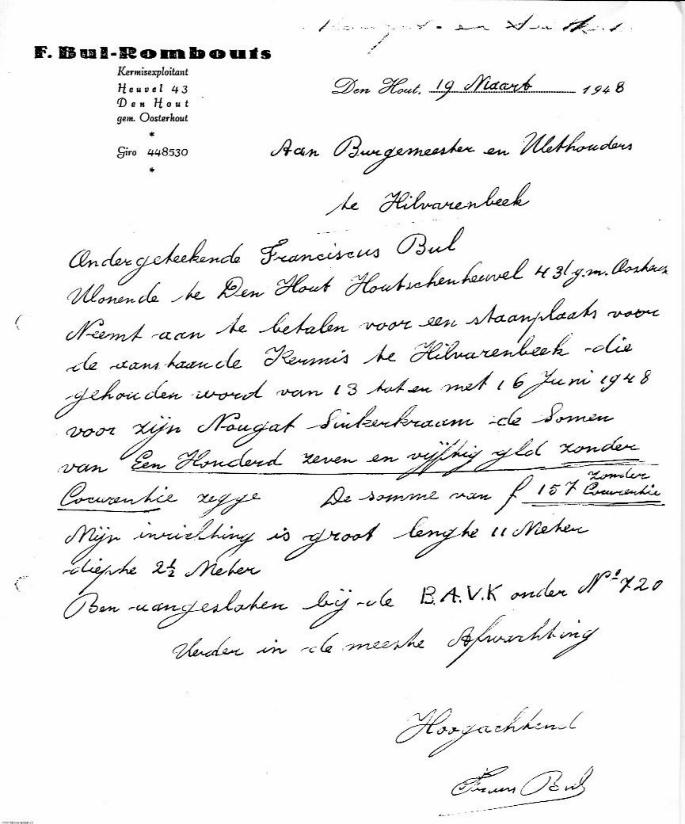 F. Bul-Rombouts
Kermisexploitant
Heuvel 43
Den Hout
gem. Oosterhout
*
Giro 448530
*
Den Hout, 19 Maart 1948
Aan Burgemeester en Wethouders
te Hilvarenbeek
Ondergeteekende Franciscus Bul
Wonende te Den Hout Houtschenheuvel 43 g.m. Oosterh
Neemt aan te betalen voor een staanplaats voor
de aanstaande Kermis te Hilvarenbeek die
gehouden word van 13 tot en met 16 Juni 1948
voor zijn Nougat Suikerkraam de Somen
van Een Honderd zeven en vijftig gld zonder
Cocurentie zegge De somme van f 157 zonder Courentie
Mijn inrichting is groot lengte 11 Meter
diepte 2½ Meter
Ben aangesloten bij de B.A.V.K onder No 720
Verder in de meeste Afwachting
Hoogachtend
Frans Bul